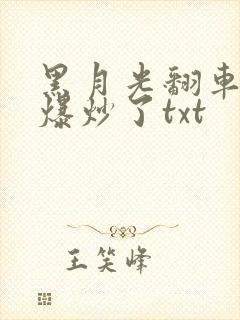 黑月光翻車
爆炒了txt
王笑峰